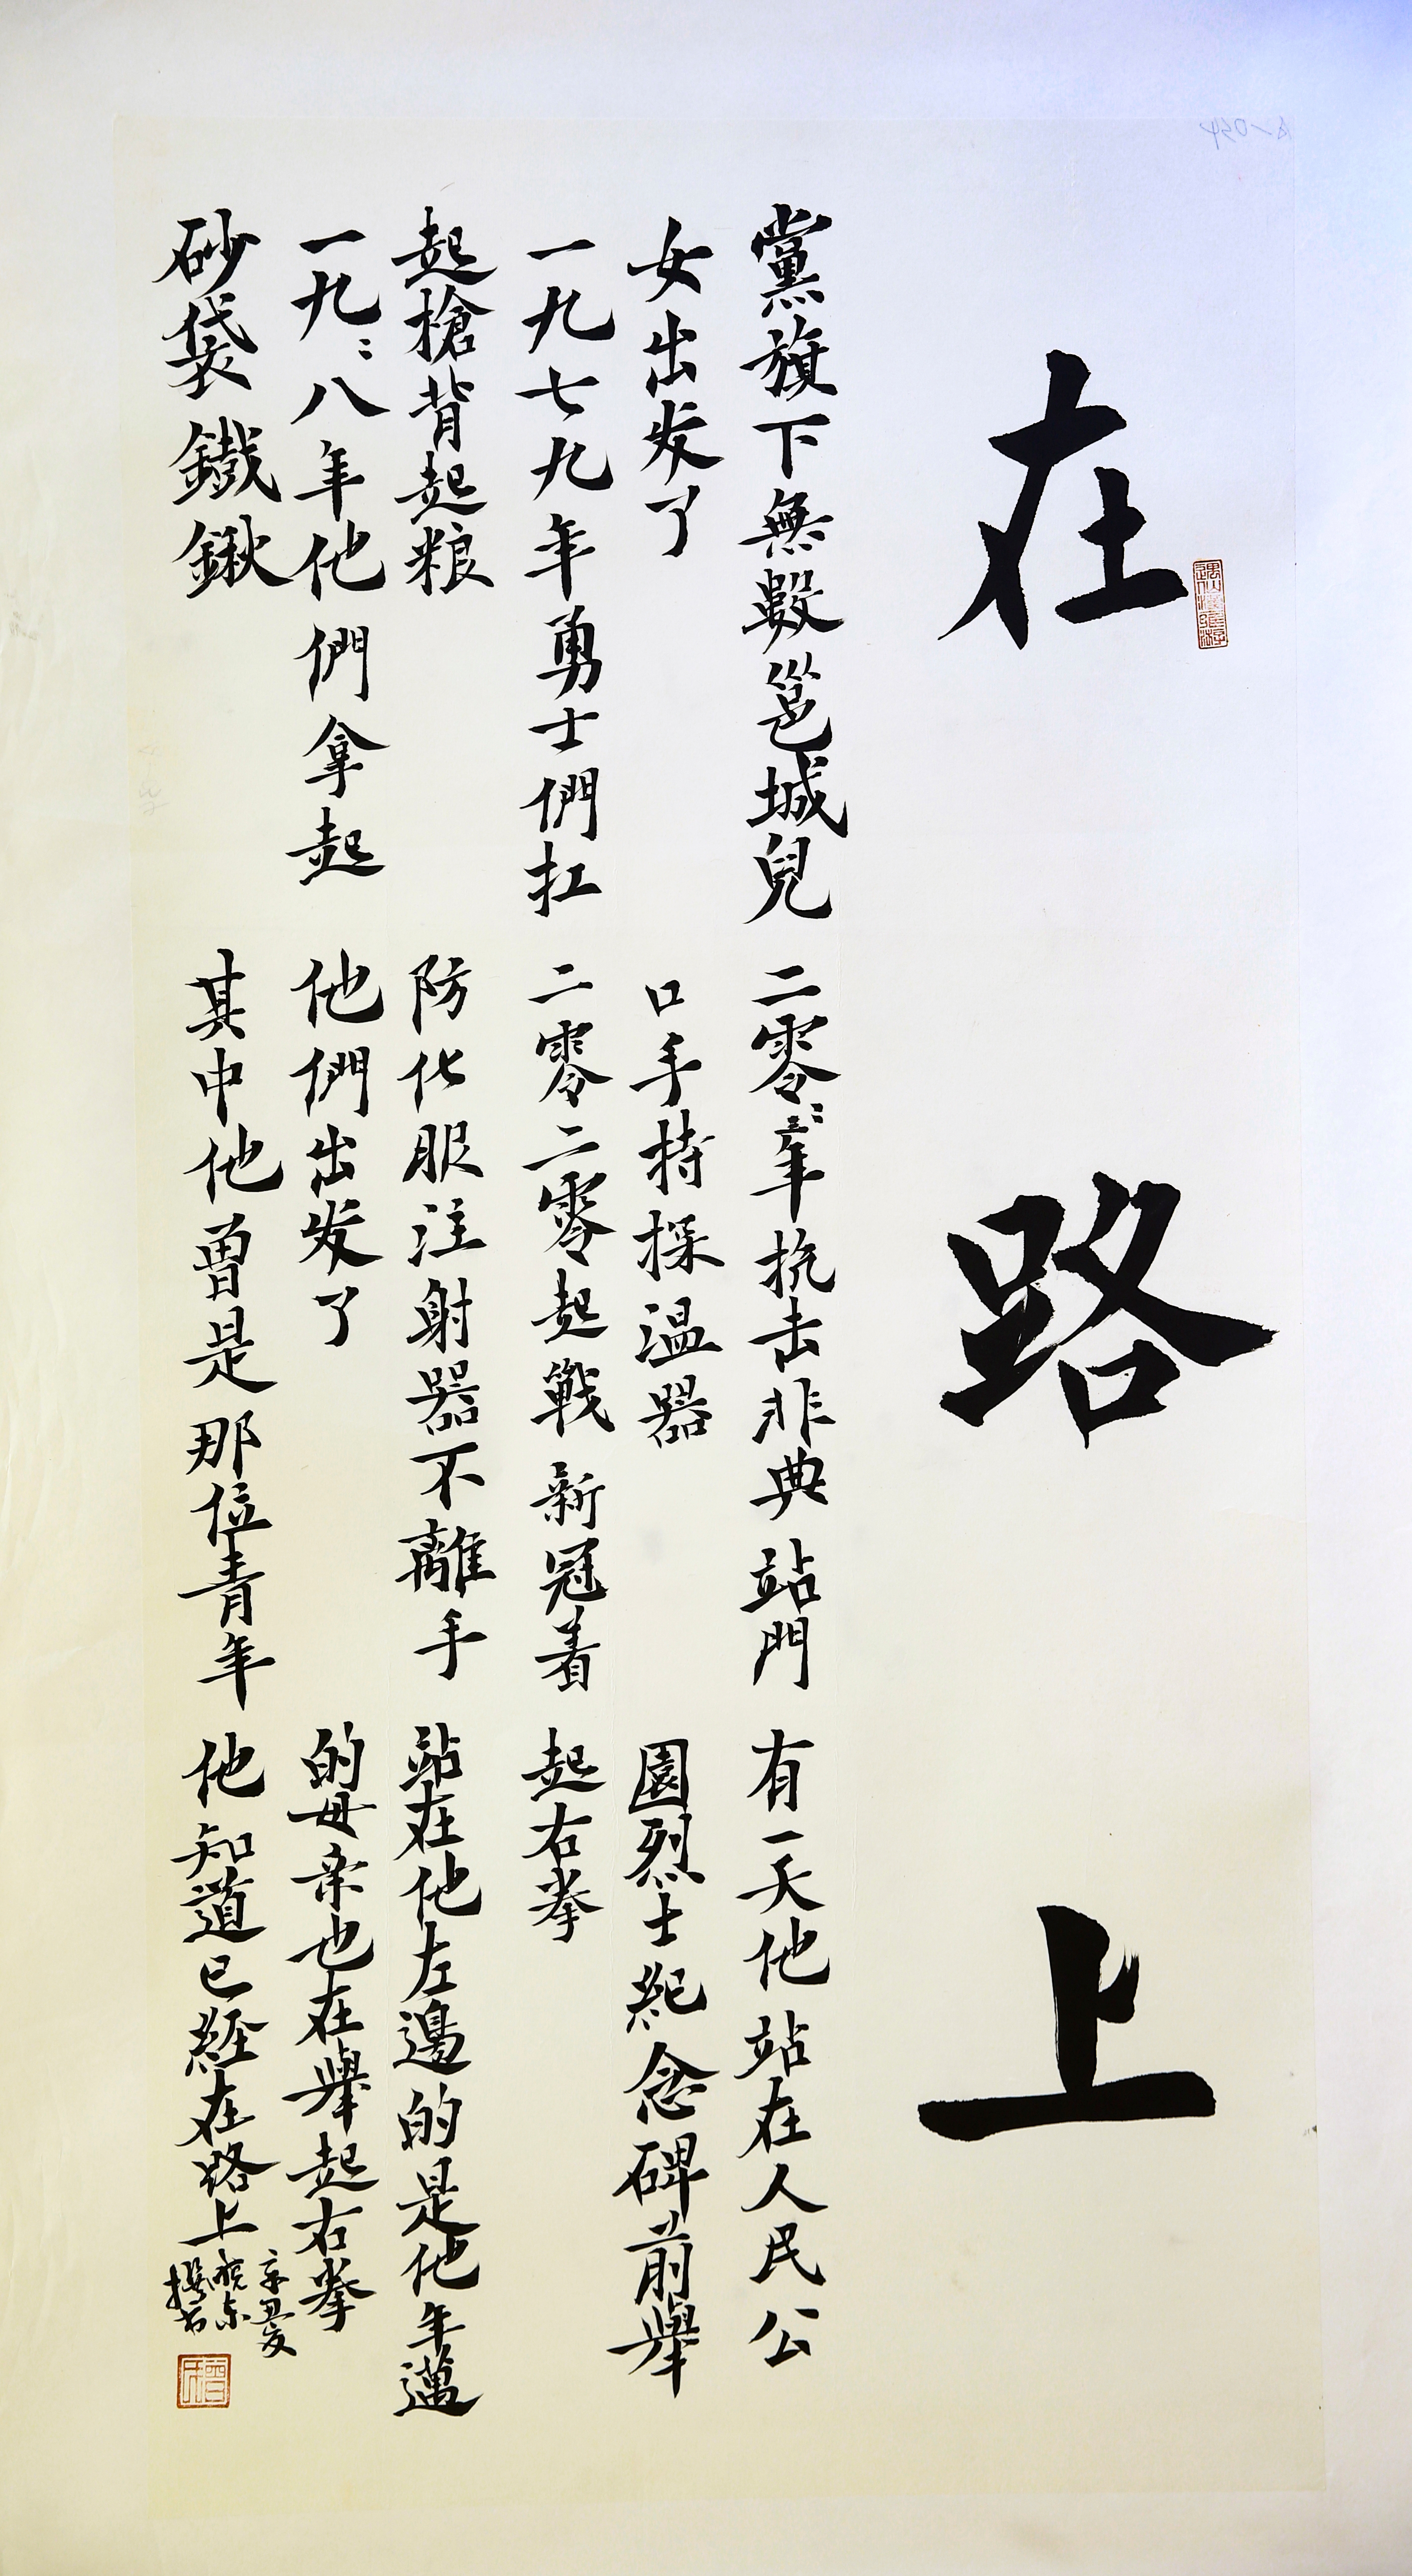 在路上
黨旗下無數邕城兒
女出发了
一九七九年勇士們扛
起槍背起粮
一九九八年他們拿起
砂袋鐵鍬
二零零三年抗击非典站門
口手持探温器
二零二零起戰新冠着
防化服注射器不離手
他們出发了
其中他曾是那位青年
有一天他站在人民公
園烈士紀念碑前舉
起右拳
站在他左邊的是他年邁
的母亲也在舉起右拳
他知道已経在路上
辛丑夏